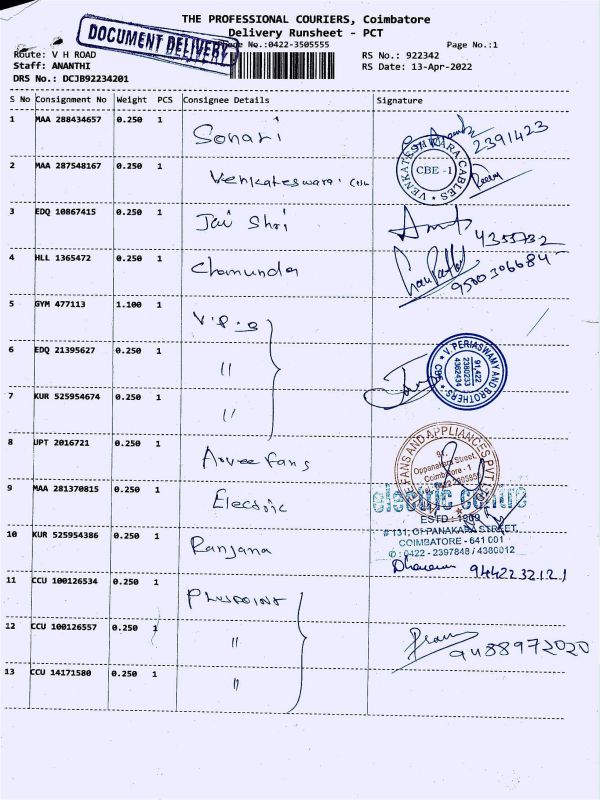 THE PROFESSIONAL COURIERS, Coimbatore
Delivery Runsheet - PCT
DOCUMENT DELIVERY
Phone No.:0422-3505555
Page No.:1
Route: V H ROAD
RS No.: 922342
Staff: ANANTHI
RS Date: 13-Apr-2022
DRS No.: DCJB92234201
S No Consignment No Weight PCS Consignee Details Signature
1 MAA 288434657 0.250 1 Sonari 2391423
2 MAA 287548167 0.250 1 Venkateswara
VENKATESWARA CABLES CBE -1
3 EDQ 10867415 0.250 1 Jai Shri 4355732
4 HLL 1365472 0.250 1 Chamunda 9500306684
5 GYM 477113 1.100 1 V.P.
6 EDQ 21395627 0.250 1 "
V. PERIASWAMY AND BROTHERS CBE
91,422
2380233
4362434
7 KUR 525954674 0.250 1 "
8 UPT 2016721 0.250 1 Arvee fans
FANS AND APPLIANCES PVT
91,
Oppanakara Street,
Coimbatore - 1
9 MAA 281370815 0.250 1 Electric
electric centre
ESTD : 1909
# 131, OPPANAKARA STREET,
COIMBATORE - 641 001
✆ : 0422 - 2397848 / 4380012
10 KUR 525954386 0.250 1 Ranjana 9442232121
11 CCU 100126534 0.250 1 PLUSPOINT
12 CCU 100126557 0.250 1 " 9488972020
13 CCU 14171580 0.250 1 "